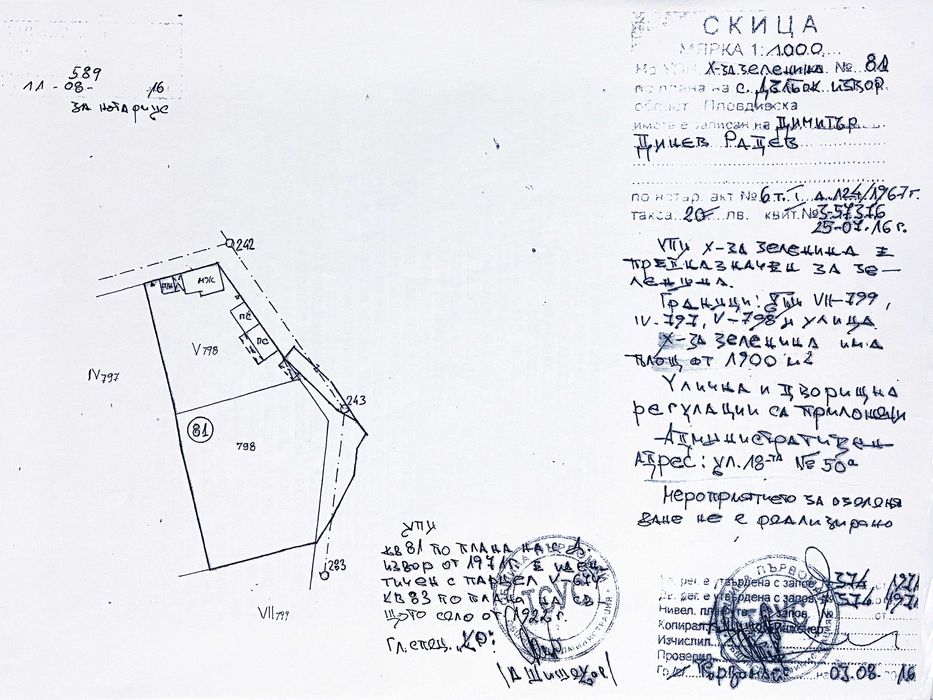 589
11 -08- 16
За нотариус
СКИЦА
МЯРКА 1: 1000
На УПИ X-за зеленина № 81
по плана на с. Дълбок извор
област Пловдивска
имота е записан на Димитър
Динев Рацев
по нотар. акт № 6 т. I д. 124/1967 г.
такса 20 лв. квит. № 357376
25-07-16 г.
УПИ X-ЗА ЗЕЛЕНИНА Е
ПРЕДНАЗНАЧЕН ЗА ЗЕ-
ЛЕНИНА.
Граници: УПИ VII-799,
IV-797, V-798 и улица
X-ЗА ЗЕЛЕНИНА ИМА
ПЛОЩ ОТ 1900 м2
Улична и дворищна
регулации са приложени
Административен
адрес: ул. 18-та № 50а
Мероприятието за озеленя
ване не е реализирано
242
МЖ
ПС
ПС
V 798
IV 797
243
81
798
283
VII 799
УПИ
КВ 81 ПО ПЛАНА НА
ИЗВОР ОТ 1971 г. Е ИДЕН
ТИЧЕН С ПАРЦЕЛ V-
КВ 83 ПО ПЛАНА НА СЪ
ЩОТО СЕЛО ОТ 192 г.
Гл. спец.
рег. е утвърдена с запов. 574 1971
Дв. рег. е утвърдена с запов. 574 1971
Нивел. план запов. № от
Копирал
Изчислил
Проверил
Гр. Първомай 03.08. 16